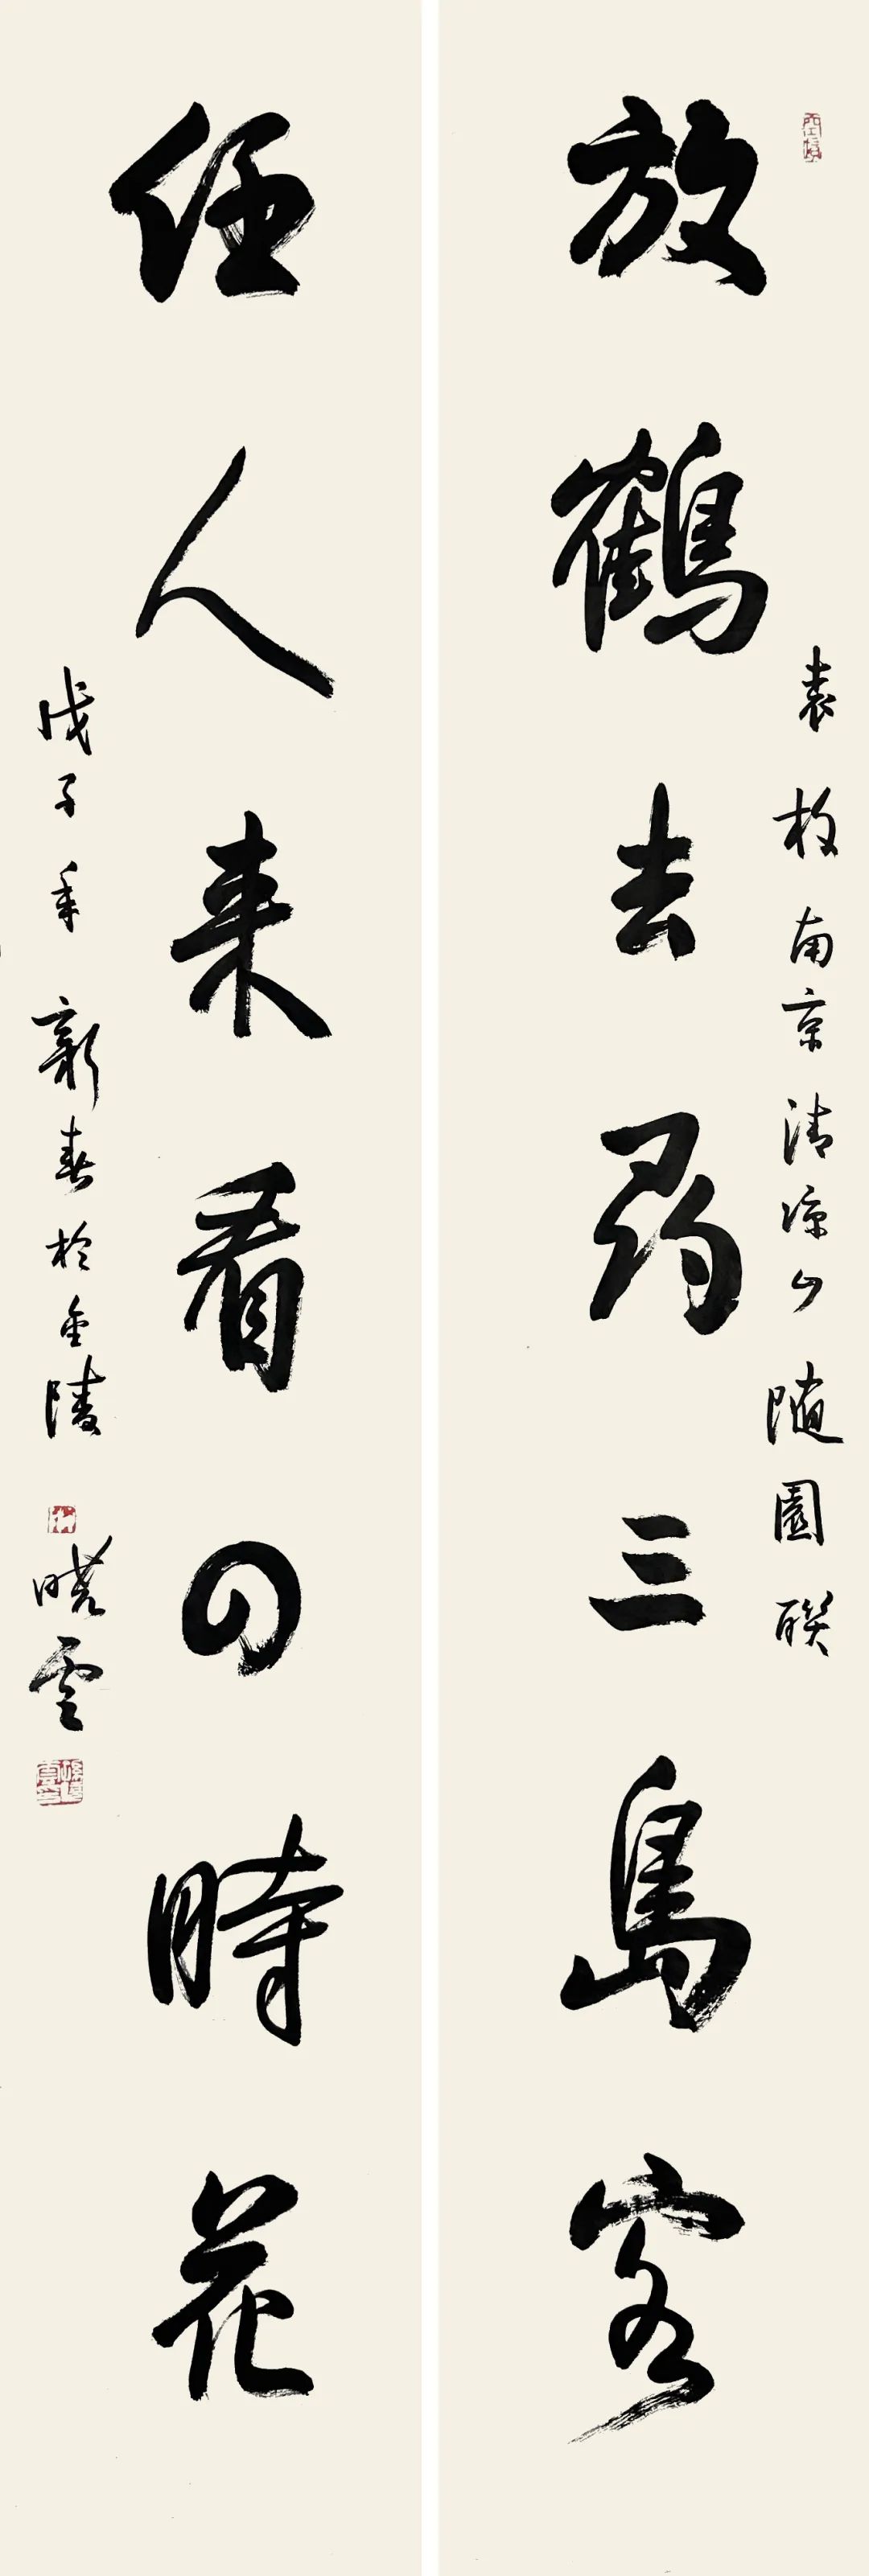 放鶴去尋三島客
袁枚南京清凉山随園聯
任人来看四時花
戊子年新春於金陵
曉雲